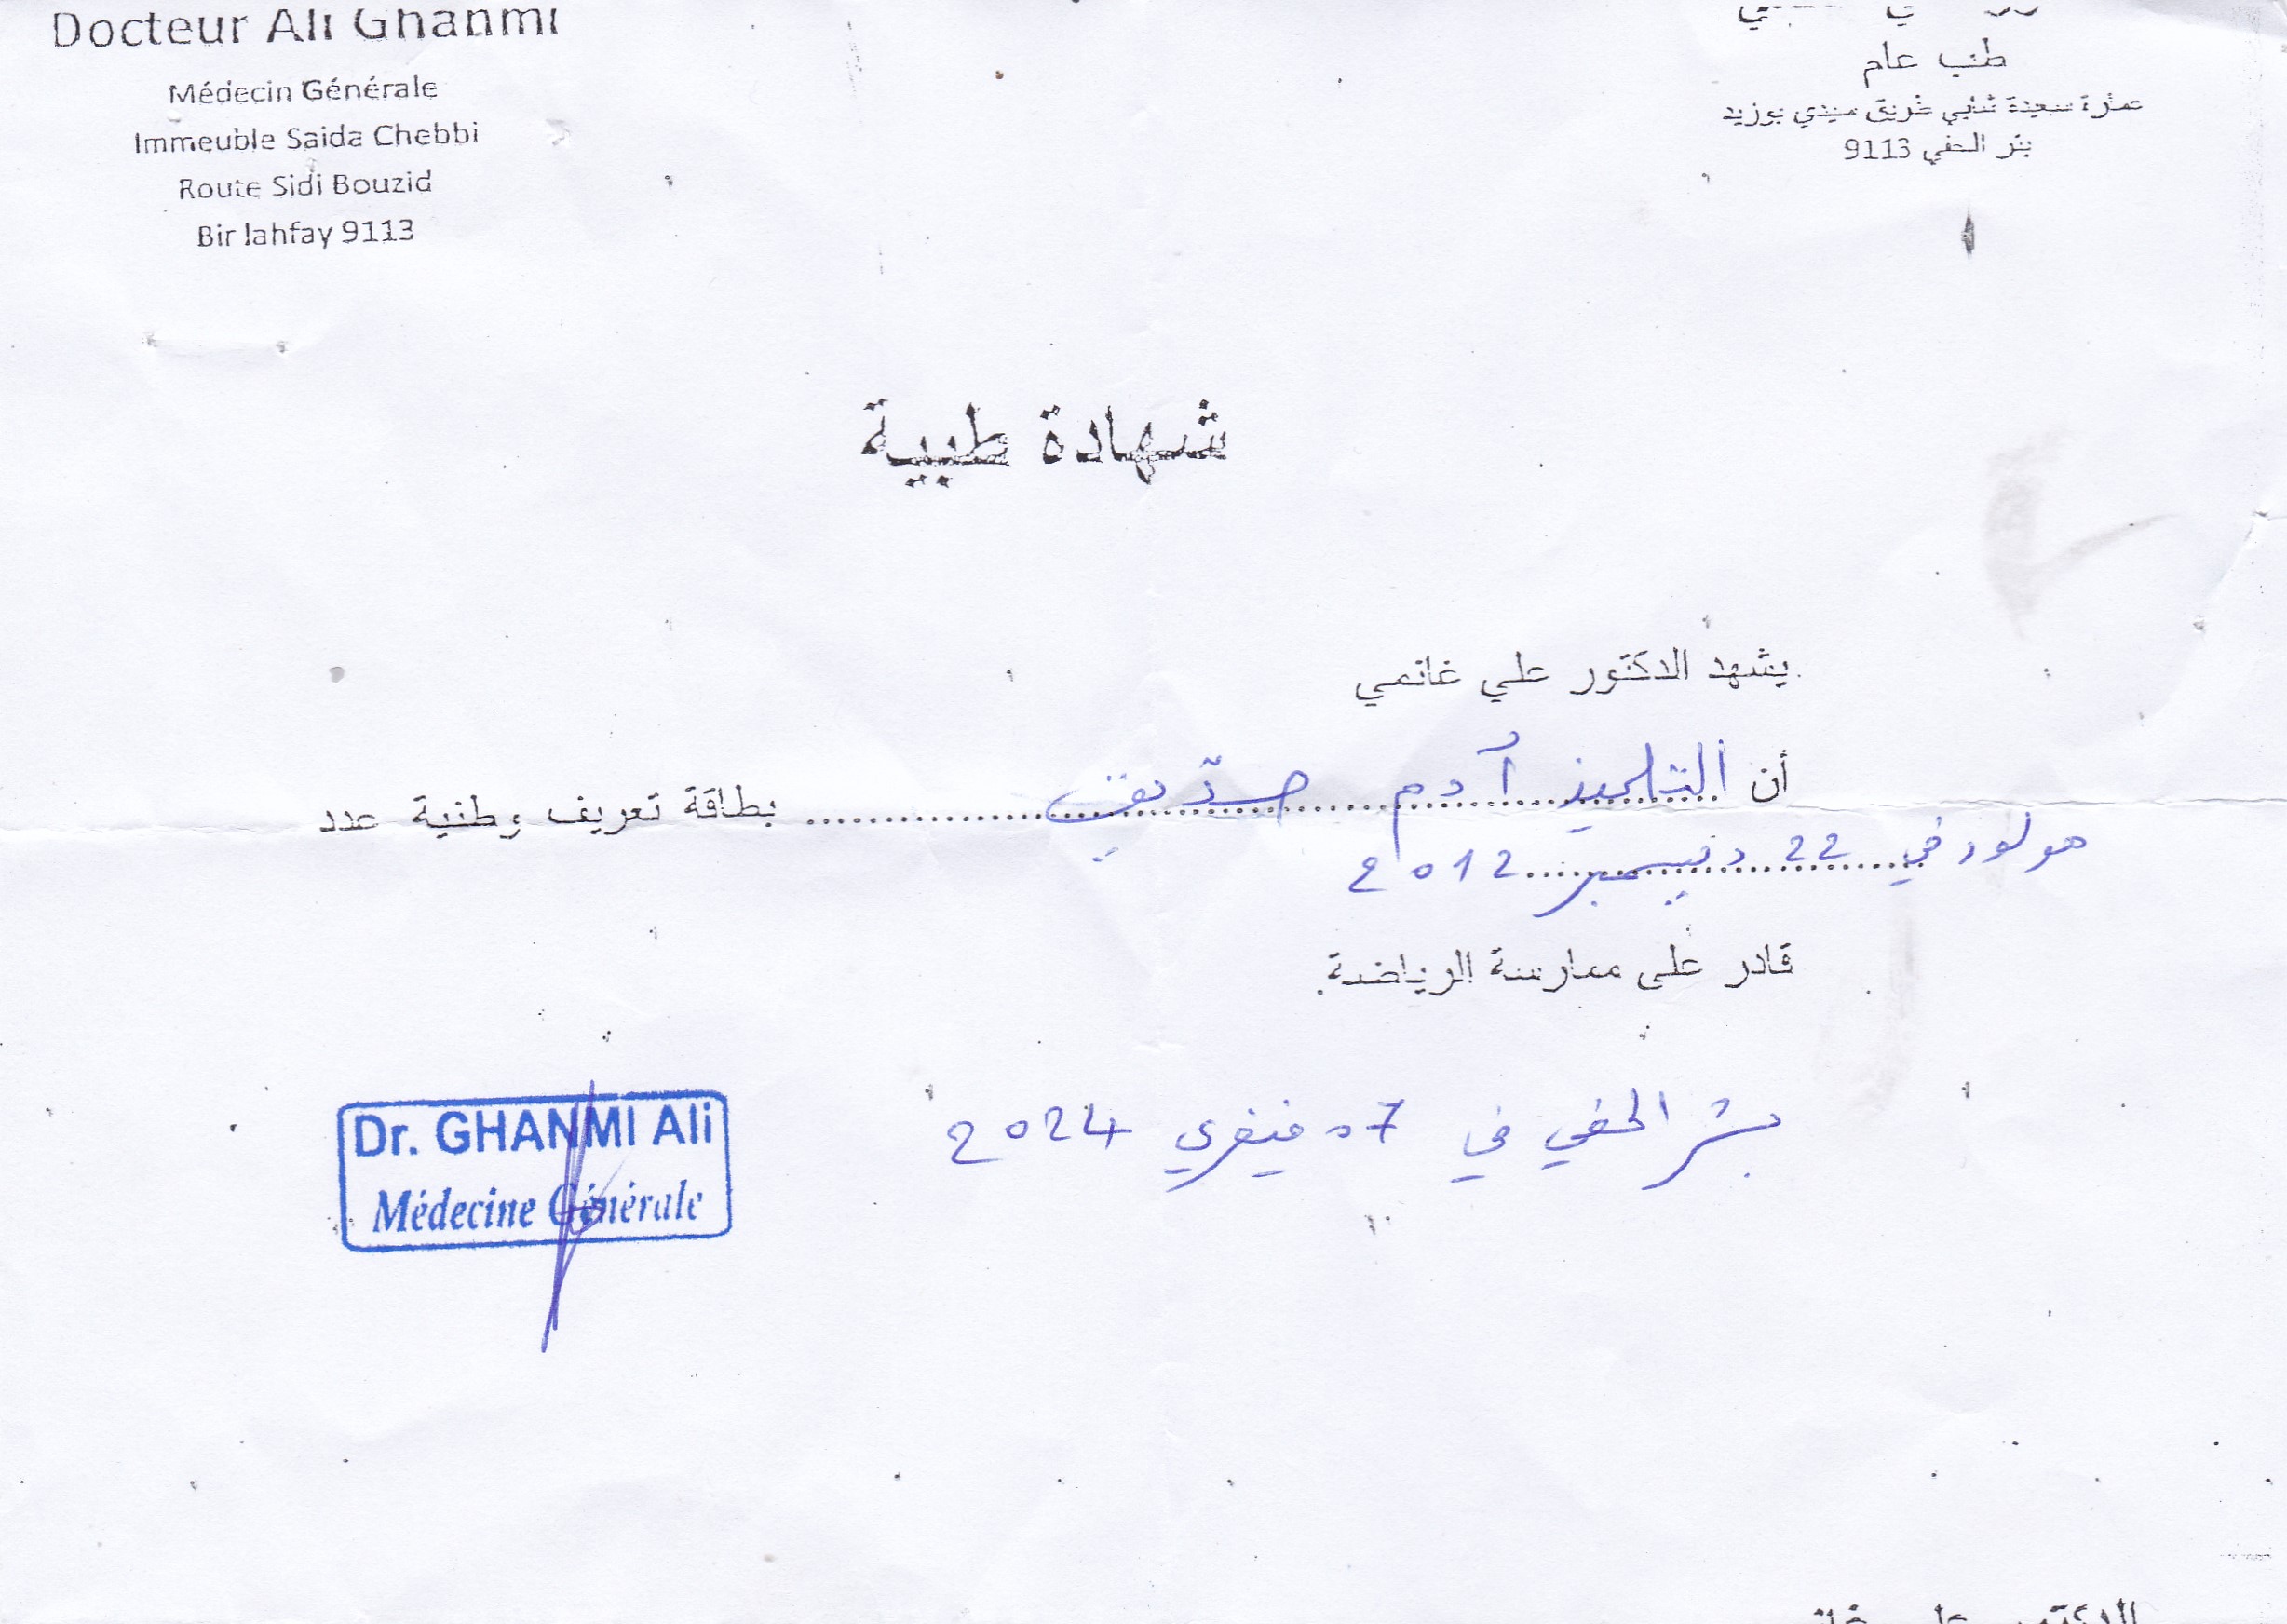 Docteur Ali Ghanmi
Médecin Générale
Immeuble Saida Chebbi
Route Sidi Bouzid
Bir lahfay 9113
طب عام
عمارة سعيدة شابي طريق سيدي بوزيد
بئر الحفي 9113
شهادة طبية
يشهد الدكتور علي غانمي
أن التلميذ آدم صدّيق بطاقة تعريف وطنية عدد
مولود في 22 ديسمبر 2012
قادر على ممارسة الرياضة.
بئر الحفي في 07 فيفري 2024
Dr. GHANMI Ali
Médecine Générale